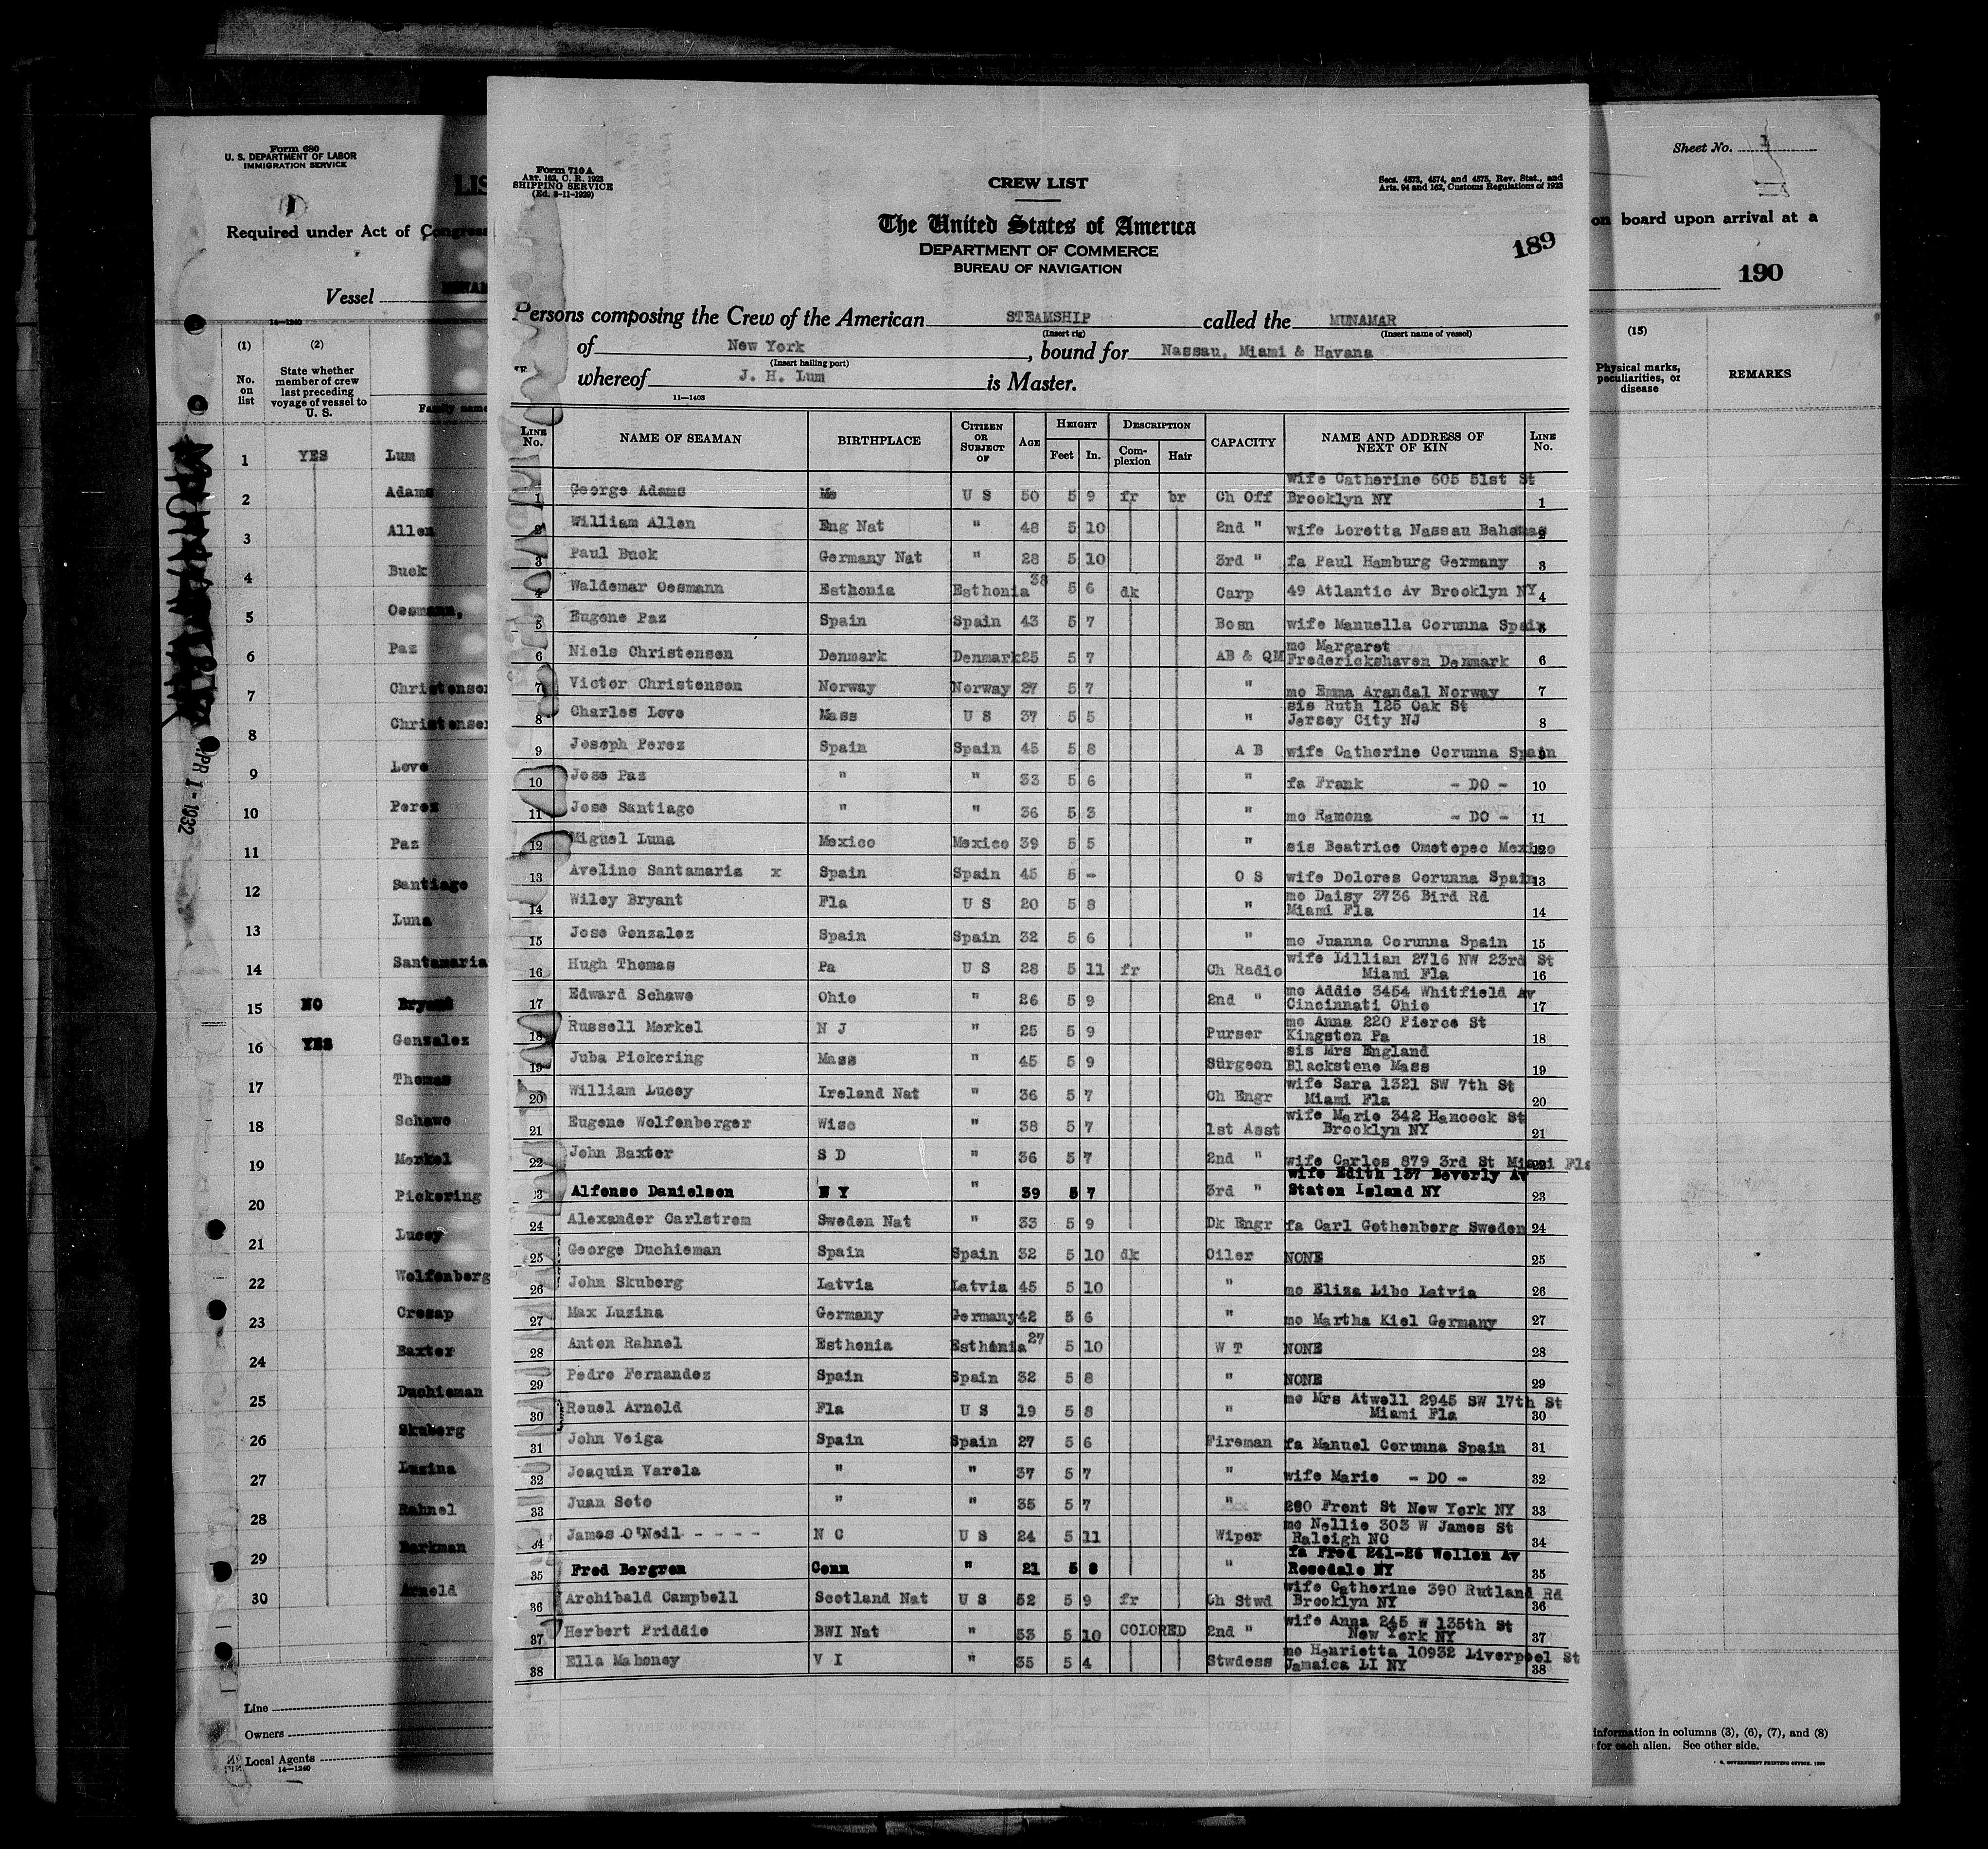 Form 680
U. S. DEPARTMENT OF LABOR
IMMIGRATION SERVICE
1
LIS
Required under Act of Congress
Vessel
14—1240
(1) (2)
No. on list
State whether member of crew last preceding voyage of vessel to U. S.
Family name
1 YES Lum
2 Adams
3 Allen
4 Buck
5 Oesmann,
6 Paz
7 Christensen
8 Christensen
9 Love
10 Perez
11 Paz
12 Santiago
13 Luna
14 Santamaria
15 NO Bryant
16 YES Gonzalez
17 Thomas
18 Schawe
19 Merkel
20 Pickering
21 Lucey
22 Wolfenberg
23 Cresap
24 Baxter
25 Duchieman
26 Skuberg
27 Luzina
28 Rahnel
29 Barkman
30 Arnold
Line
Owners
Local Agents
14—1240
APR 1 - 1932
Form 710 A
ART. 162, C. R. 1923
SHIPPING SERVICE
(Ed. 8-11-1929)
CREW LIST
Secs. 4573, 4574, and 4575, Rev. Stat., and
Arts. 94 and 162, Customs Regulations of 1923
The United States of America
DEPARTMENT OF COMMERCE
BUREAU OF NAVIGATION
189
Persons composing the Crew of the American STEAMSHIP called the MUNAMAR
(Insert rig) (Insert name of vessel)
of New York, bound for Nassau, Miami & Havana
(Insert hailing port)
whereof J. H. Lum is Master.
11—1403
LINE No. NAME OF SEAMAN BIRTHPLACE CITIZEN OR SUBJECT OF AGE HEIGHT Feet In. DESCRIPTION Complexion Hair CAPACITY NAME AND ADDRESS OF NEXT OF KIN LINE No.
1 George Adams Me U S 50 5 9 fr br Ch Off wife Catherine 605 51st St Brooklyn NY 1
2 William Allen Eng Nat " 48 5 10 2nd " wife Loretta Nassau Bahamas 2
3 Paul Buck Germany Nat " 28 5 10 3rd " fa Paul Hamburg Germany 3
4 Waldemar Oesmann Esthonia Esthonia 38 5 6 dk Carp 49 Atlantic Av Brooklyn NY 4
5 Eugene Paz Spain Spain 43 5 7 Bosn wife Manuella Corunna Spain 5
6 Niels Christensen Denmark Denmark 25 5 7 AB & QM mo Margaret Frederickshaven Denmark 6
7 Victor Christensen Norway Norway 27 5 7 " mo Emma Arandal Norway 7
8 Charles Love Mass U S 37 5 5 " sis Ruth 125 Oak St Jersey City NJ 8
9 Joseph Perez Spain Spain 45 5 8 A B wife Catherine Corunna Spain 9
10 Jose Paz " " 33 5 6 " fa Frank - DO - 10
11 Jose Santiago " " 36 5 3 " mo Ramona - DO - 11
12 Miguel Luna Mexico Mexico 39 5 5 " sis Beatrice Ometepec Mexico 12
13 Avelino Santamaria x Spain Spain 45 5 - O S wife Dolores Corunna Spain 13
14 Wiley Bryant Fla U S 20 5 8 " mo Daisy 3736 Bird Rd Miami Fla 14
15 Jose Gonzalez Spain Spain 32 5 6 " mo Juanna Corunna Spain 15
16 Hugh Thomas Pa U S 28 5 11 fr Ch Radio wife Lillian 2716 NW 23rd St Miami Fla 16
17 Edward Schawe Ohio " 26 5 9 2nd " mo Addie 3454 Whitfield Av Cincinnati Ohio 17
18 Russell Merkel N J " 25 5 9 Purser mo Anna 220 Pierce St Kingston Pa 18
19 Juba Pickering Mass " 45 5 9 Surgeon sis Mrs England Blackstone Mass 19
20 William Lucey Ireland Nat " 36 5 7 Ch Engr wife Sara 1321 SW 7th St Miami Fla 20
21 Eugene Wolfenberger Wisc " 38 5 7 1st Asst wife Marie 342 Hancock St Brooklyn NY 21
22 John Baxter S D " 36 5 7 2nd " wife Carlos 879 3rd St Miami Fla 22
23 Alfonso Danielson N Y " 39 5 7 3rd " wife Edith 137 Beverly Av Staten Island NY 23
24 Alexander Carlstrom Sweden Nat " 33 5 9 Dk Engr fa Carl Gothenberg Sweden 24
25 George Duchieman Spain Spain 32 5 10 dk Oiler NONE 25
26 John Skuberg Latvia Latvia 45 5 10 " mo Eliza Libo Latvia 26
27 Max Luzina Germany Germany 42 5 6 " mo Martha Kiel Germany 27
28 Anton Rahnel Esthonia Esthonia 27 5 10 W T NONE 28
29 Pedro Fernandez Spain Spain 32 5 8 " NONE 29
30 Reuel Arnold Fla U S 19 5 8 " mo Mrs Atwell 2945 SW 17th St Miami Fla 30
31 John Veiga Spain Spain 27 5 6 Fireman fa Manuel Corunna Spain 31
32 Joaquin Varela " " 37 5 7 " wife Marie - DO - 32
33 Juan Soto " " 35 5 7 " 280 Front St New York NY 33
34 James O'Neil - - - - N C U S 24 5 11 Wiper mo Nellie 303 W James St Raleigh NC 34
35 Fred Bergren Conn " 21 5 8 " fa Fred 241-26 Weller Av Rosedale NY 35
36 Archibald Campbell Scotland Nat U S 52 5 9 fr Ch Stwd wife Catherine 390 Rutland Rd Brooklyn NY 36
37 Herbert Priddie BWI Nat " 53 5 10 COLORED 2nd " wife Anna 245 W 135th St New York NY 37
38 Ella Mahoney V I " 35 5 4 Stwdess mo Henrietta 10932 Liverpool St Jamaica LI NY 38
Sheet No. 1
on board upon arrival at a
190
(15)
Physical marks, peculiarities, or disease
REMARKS
information in columns (3), (6), (7), and (8)
for each alien. See other side.
GOVERNMENT PRINTING OFFICE